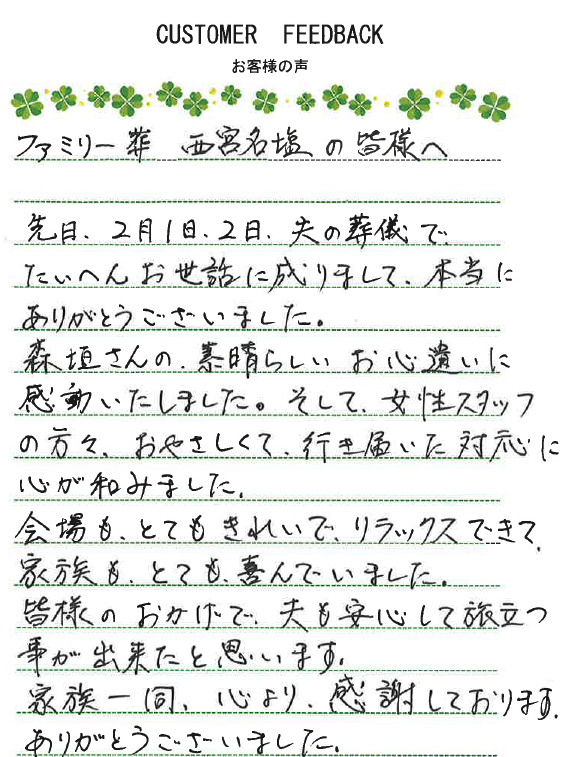 CUSTOMER FEEDBACK
お客様の声
ファミリー葬 西宮名塩の皆様へ
先日、2月1日、2日、夫の葬儀で、
たいへんお世話に成りまして、本当に
ありがとうございました。
森垣さんの、素晴らしいお心遣いに
感動いたしました。そして、女性スタッフ
の方々、おやさしくて、行き届いた対応に
心が和みました。
会場も、とてもきれいで、リラックスできて、
家族も、とても、喜んでいました。
皆様のおかげで、夫も安心して旅立つ
事が出来たと思います。
家族一同、心より、感謝しております。
ありがとうございました。